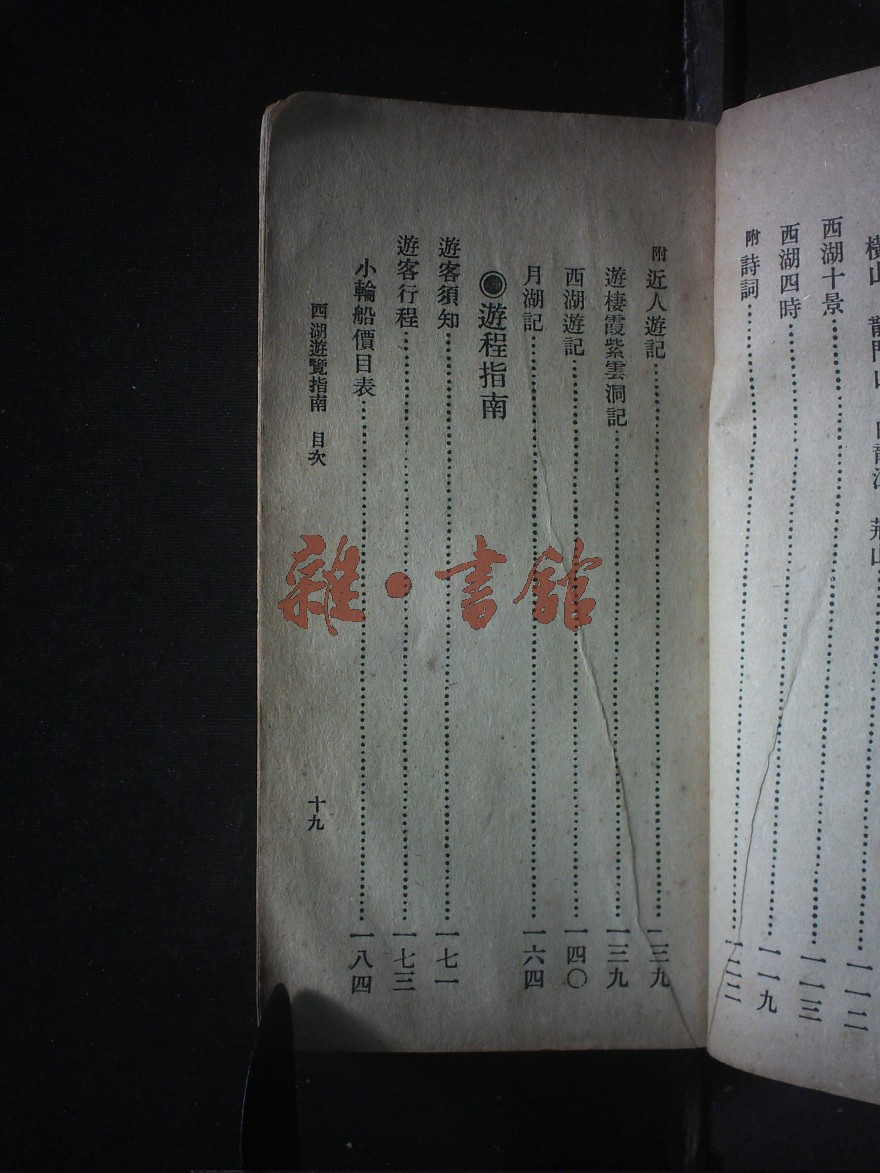 西湖十景……一一三
西湖四時……一一九
附 詩詞……一二二
附 近人遊記……一三九
遊棲霞紫雲洞記……一三九
西湖遊記……一四〇
月湖記……一六四
◉遊程指南
遊客須知……一七一
遊客行程……一七三
小輪船價目表……一八四
西湖遊覽指南 目次 十九
雜·書館